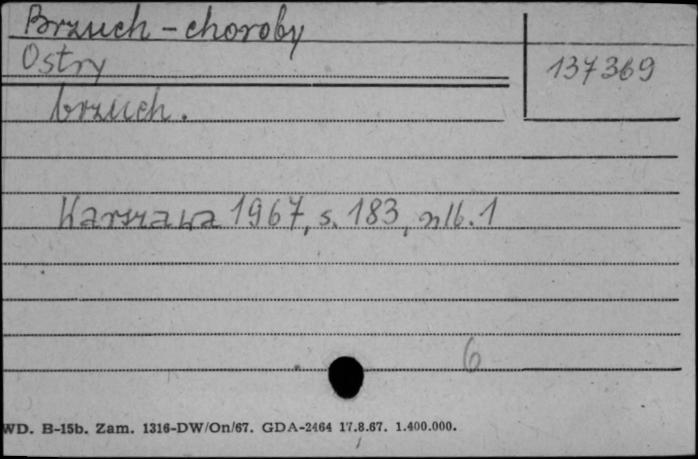 Brzuch - choroby
Ostry
137369
brzuch.
Warszawa 1967, s. 183, nlb. 1
6
WD. B-15b. Zam. 1316-DW/On/67. GDA-2464 17.8.67. 1.400.000.